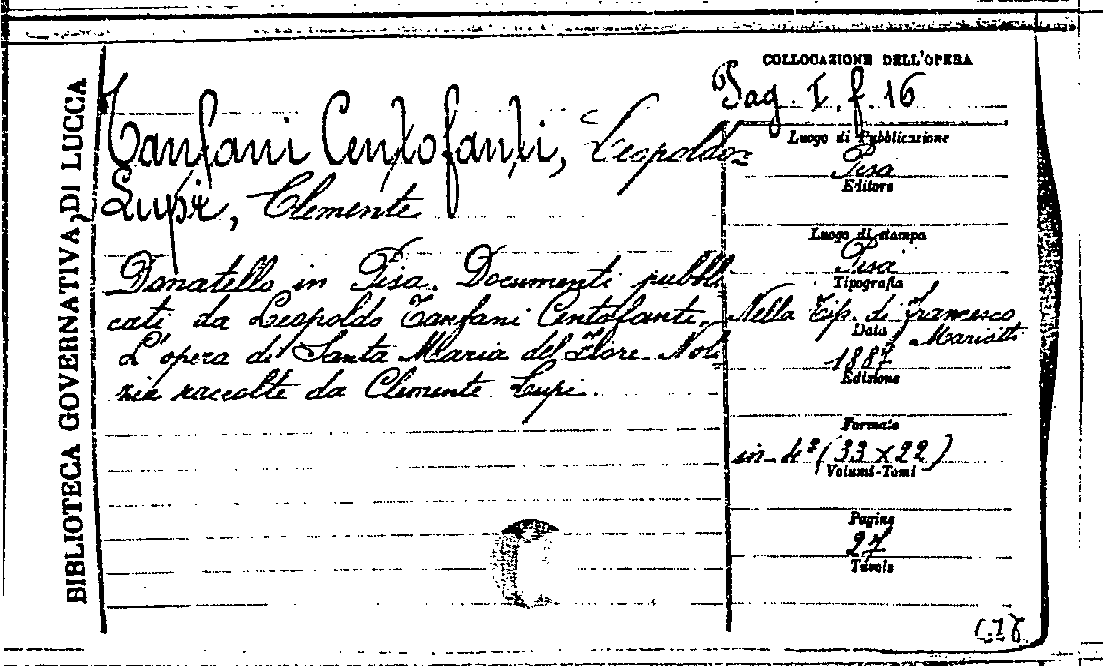 BIBLIOTECA GOVERNATIVA DI LUCCA
Tanfani Centofanti, Leopoldo
Lupi, Clemente
Donatello in Pisa. Documenti pubbli
cati da Leopoldo Tanfani Centofanti.
L'opera di Santa Maria del Fiore. Noti
zie raccolte da Clemente Lupi.
COLLOCAZIONE DELL'OPERA
I. f. 16
Luogo di Pubblicazione
Pisa
Editore
Luogo di stampa
Pisa
Tipografia
Nella Tip. di Francesco
Mariotti
Data
1887
Edizione
Formato
in-4º (33 x 22)
Volumi-Tomi
Pagine
27
Tavole